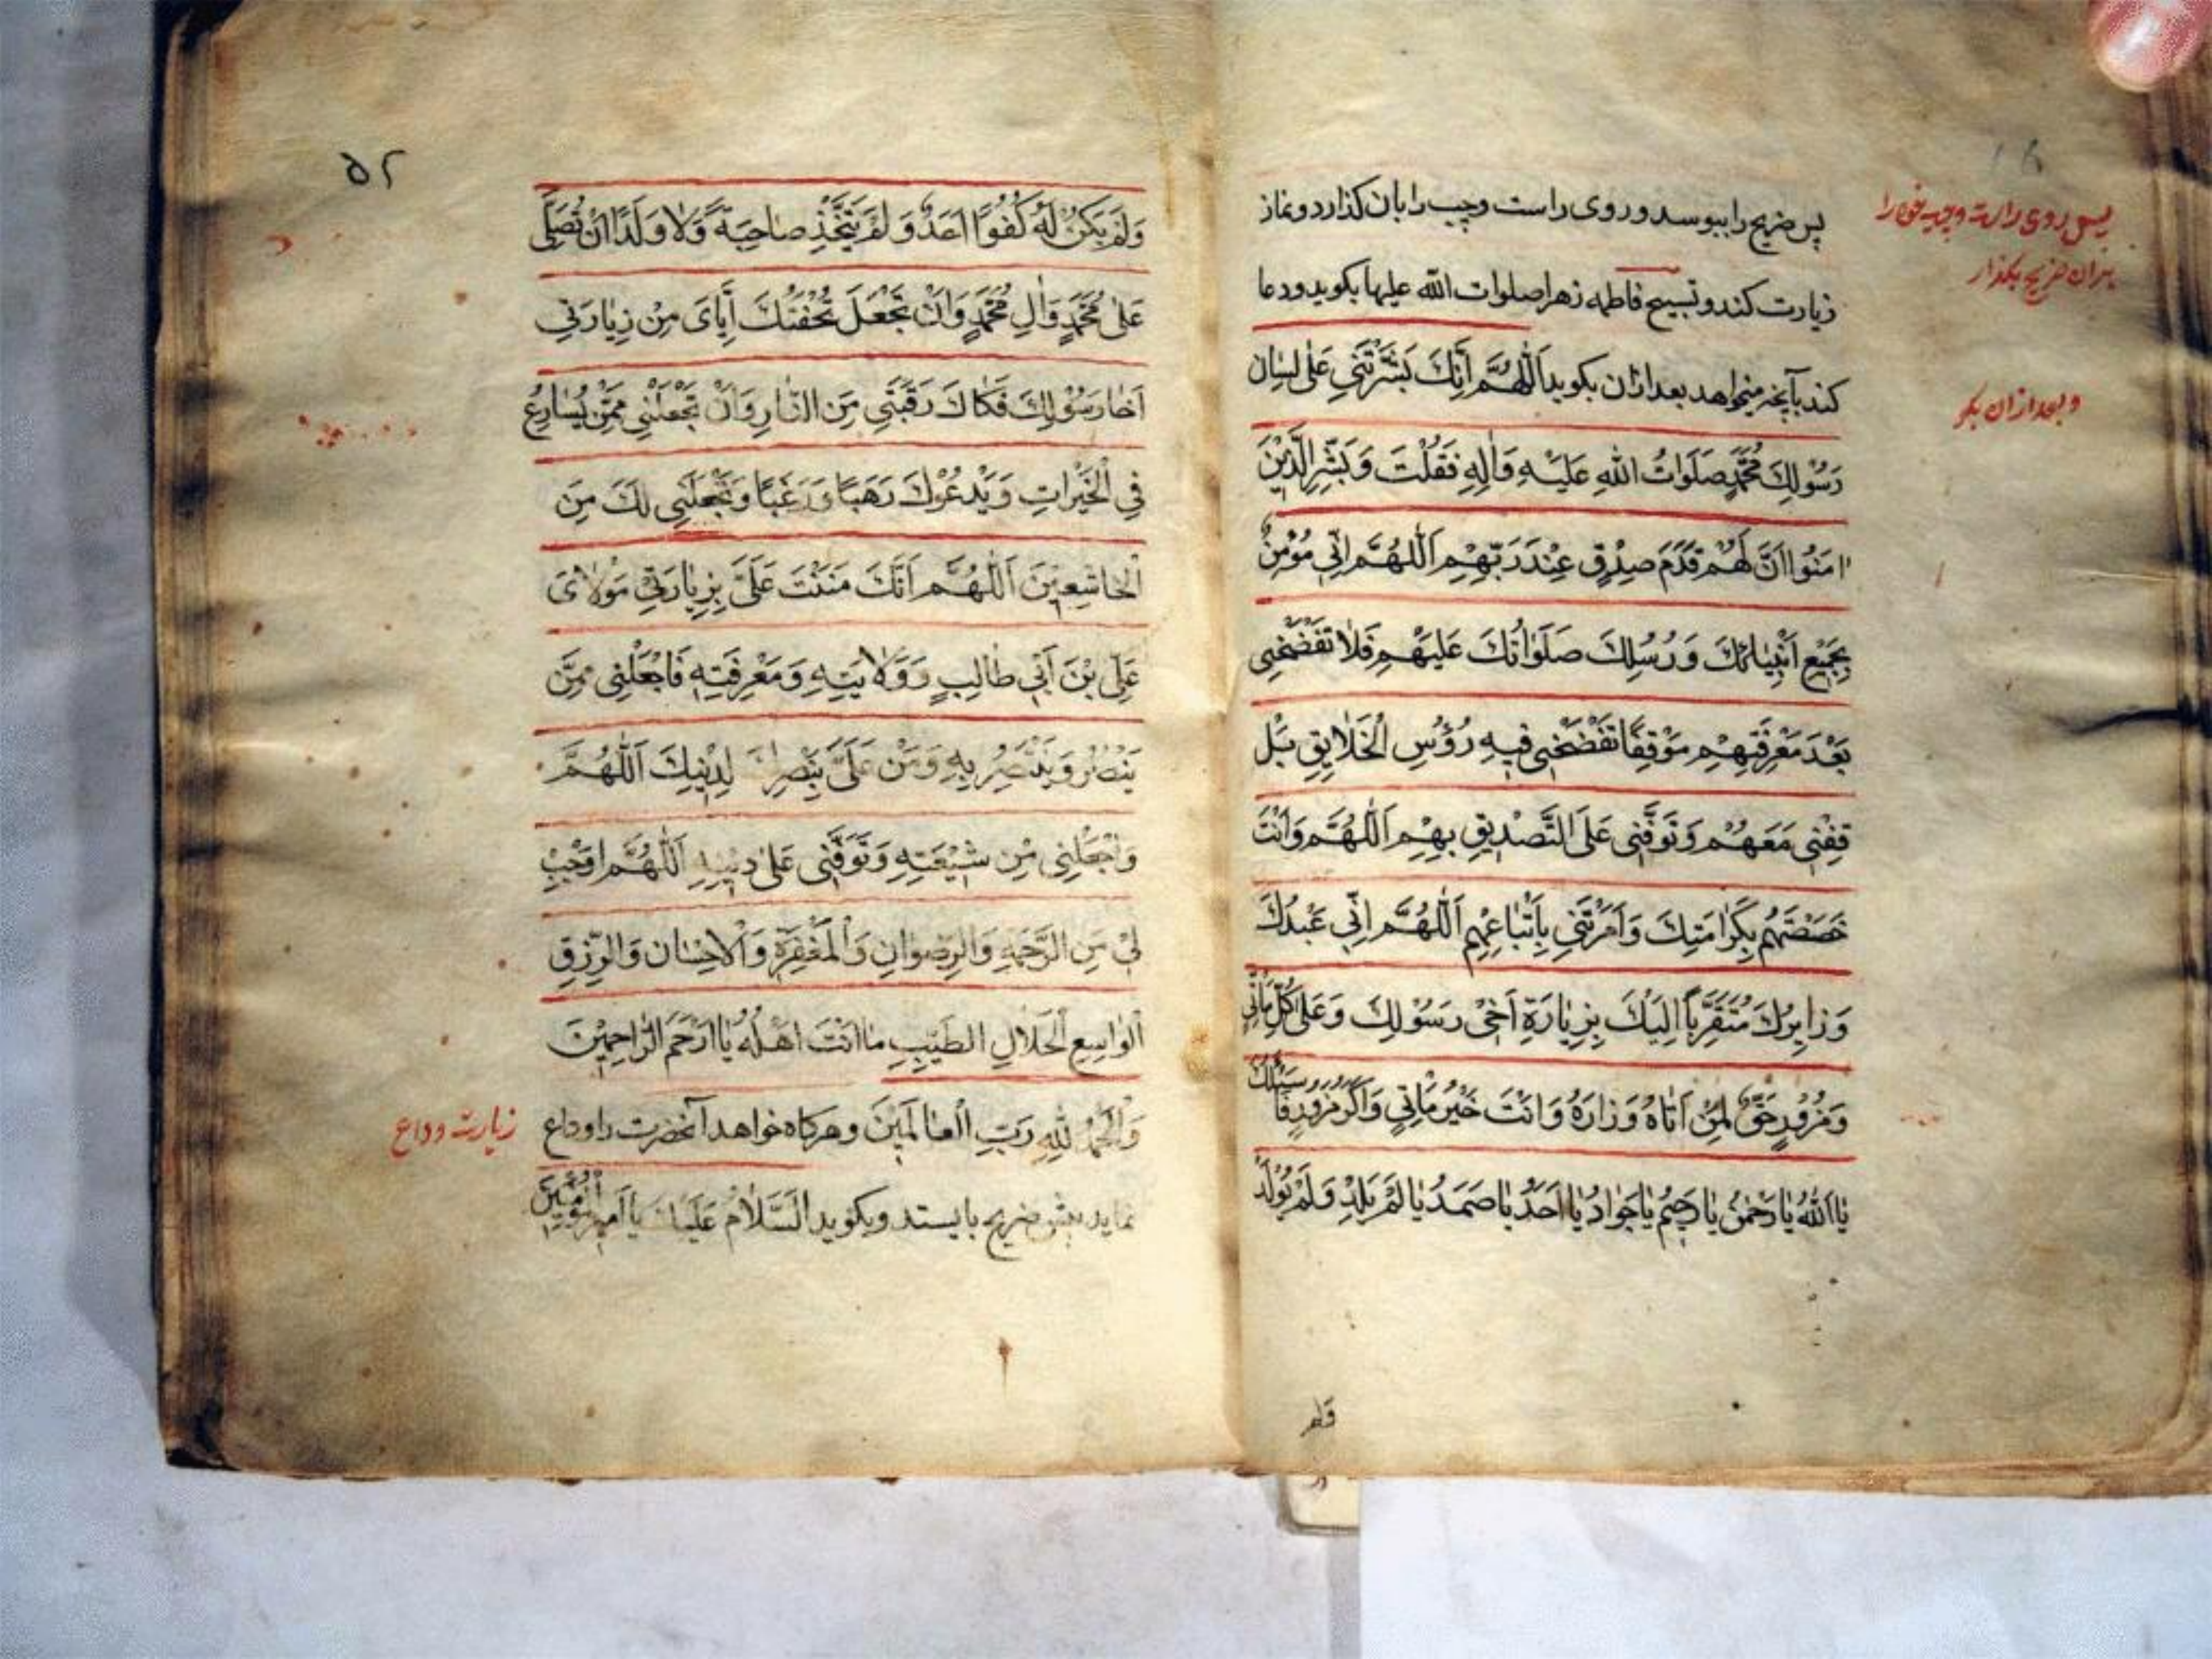 پس ضریح را ببوسد و روی راست و چپ را بان کذارد و نماز
زیارت کند و تسبیح فاطمه زهرا صلوات الله علیها بکوید و دعا
کند بآنچه میخواهد بعد ازان بکوید اَللّٰهُمَّ اِنَّكَ بَشَّرْتَنِي عَلٰی لِسَانِ
رَسُوْلِكَ مُحَمَّدٍ صَلَوَاتُ اللهِ عَلَيْهِ وَاٰلِهِ فَقُلْتَ وَبَشِّرِ الَّذِيْنَ
اٰمَنُوا اَنَّ لَهُمْ قَدَمَ صِدْقٍ عِنْدَ رَبِّهِمْ اَللّٰهُمَّ اِنّي مُؤْمِنٌ
بِجَمِيْعِ اَنْبِيٰائِكَ وَرُسُلِكَ صَلَوٰاتُكَ عَلَيْهِمْ فَلٰا تَفْضَحْنِي
بَعْدَ مَعْرِفَتِهِمْ مَوْقِفًا تَفْضَحُنِي فِيهِ رُؤُسِ الْخَلٰايِقِ بَلْ
قِفْنِي مَعَهُمْ وَتَوَفَّنِي عَلَى التَّصْدِيقِ بِهِمْ اَللّٰهُمَّ وَاَنْتَ
خَصَصْتَهُم بِكَرٰامَتِكَ وَاَمَرْتَنِي بِاَتْبٰاعِهِم اَللّٰهُمَّ اِنّي عَبْدُكَ
وَزٰايِرُكَ مُتَقَرِّبًا اِلَيْكَ بِزِيٰارَةِ اَخِي رَسُوْلِكَ وَعَلٰى كُلِّ مٰاتِيٍّ
وَمَزُوْرٍ حَقٌّ لِمَنْ اَتٰاهُ وَزٰارَهُ وَاَنْتَ خَيْرُ مٰاتِيٍّ وَاَكْرَمُ مَزُوْرٍ فَاَسْئَلُكَ
يٰا اَللهُ يٰا رَحْمٰنُ يٰا رَحِيْمُ يٰا جَوٰادُ يٰا اَحَدُ يٰا صَمَدُ يٰا لَمْ يَلِدْ وَلَمْ يُوْلَدْ
ولم
پس روی راست و چپ خود را
بران ضریح بکذار
و بعد ازان بکو
۵۲
وَلَمْ يَكُنْ لَهُ كُفُوًا اَحَدٌ وَ لَمْ يَتَّخِذْ صٰاحِبَةً وَلٰا وَلَدًا اَنْ تُصَلِّيَ
عَلٰى مُحَمَّدٍ وَاٰلِ مُحَمَّدٍ وَاَنْ تَجْعَلَ تُحْفَتَكَ اِيّٰاىَ مِنْ زِيٰارَتِي
اَخٰا رَسُوْلِكَ فَكٰاكَ رَقَبَتِي مِنَ النّٰارِ وَاَنْ تَجْعَلَنِي مِمَّنْ يُسٰارِعُ
فِي الْخَيْرٰاتِ وَيَدْعُوْكَ رَهَبًا وَرَغَبًا وَتَجْعَلَنِي لَكَ مِنَ
الْخٰاشِعِيْنَ اَللّٰهُمَّ اِنَّكَ مَنَنْتَ عَلَيَّ بِزِيٰارَتِي مَوْلٰاىَ
عَلِيّ بْنَ اَبِي طٰالِبٍ وَوَلٰايَتِهِ وَمَعْرِفَتِهِ فَاجْعَلْنِي مِمَّنْ
يَنْصُرُ وَيَنْتَصِرُ بِهِ وَمَنِّ عَلَيَّ بِنَصْرِكَ لِدِيْنِكَ اَللّٰهُمَّ
وَاجْعَلْنِي مِنْ شِيْعَتِهِ وَتَوَفَّنِي عَلٰى دِيْنِهِ اَللّٰهُمَّ اَوْجِبْ
لِيْ مِنَ الرَّحْمَةِ وَالرِضْوٰانِ وَالْمَغْفِرَةِ وَالْاِحْسٰانِ وَالرِّزْقِ
الْوٰاسِعِ الْحَلٰالِ الطَيِّبِ مٰا اَنْتَ اَهْلُهُ يٰا اَرْحَمَ الرّٰاحِمِيْنَ
وَالْحَمْدُ لِلّٰهِ رَبِّ الْعٰالَمِيْنَ وهرکاه خواهد آنحضرت را وداع
نماید پیش ضریح بایستد و بکوید اَلسَّلٰامُ عَلَيْكَ يٰا اَمِيْرَ الْمُؤْمِنِيْنَ
زیارت وداع